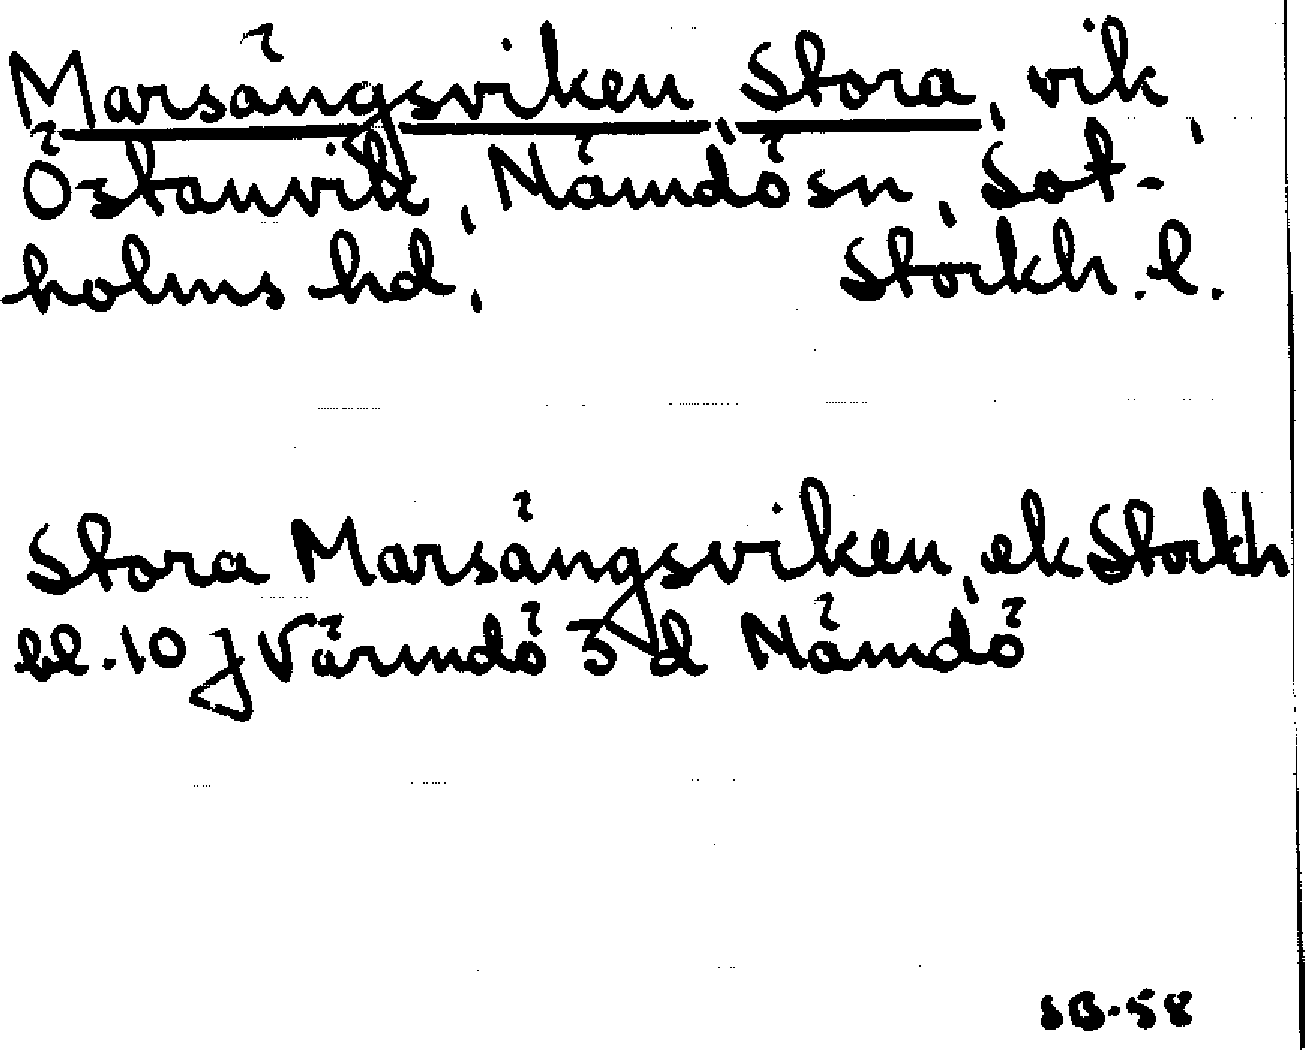 Marsängsviken, Stora, vik,
Östanvik, Nämdö sn, Sot-
holms hd, Stockh. l.
Stora Marsängsviken, ek Stockh
bl. 10 J Värmdö 3 d Nämdö
SB-58